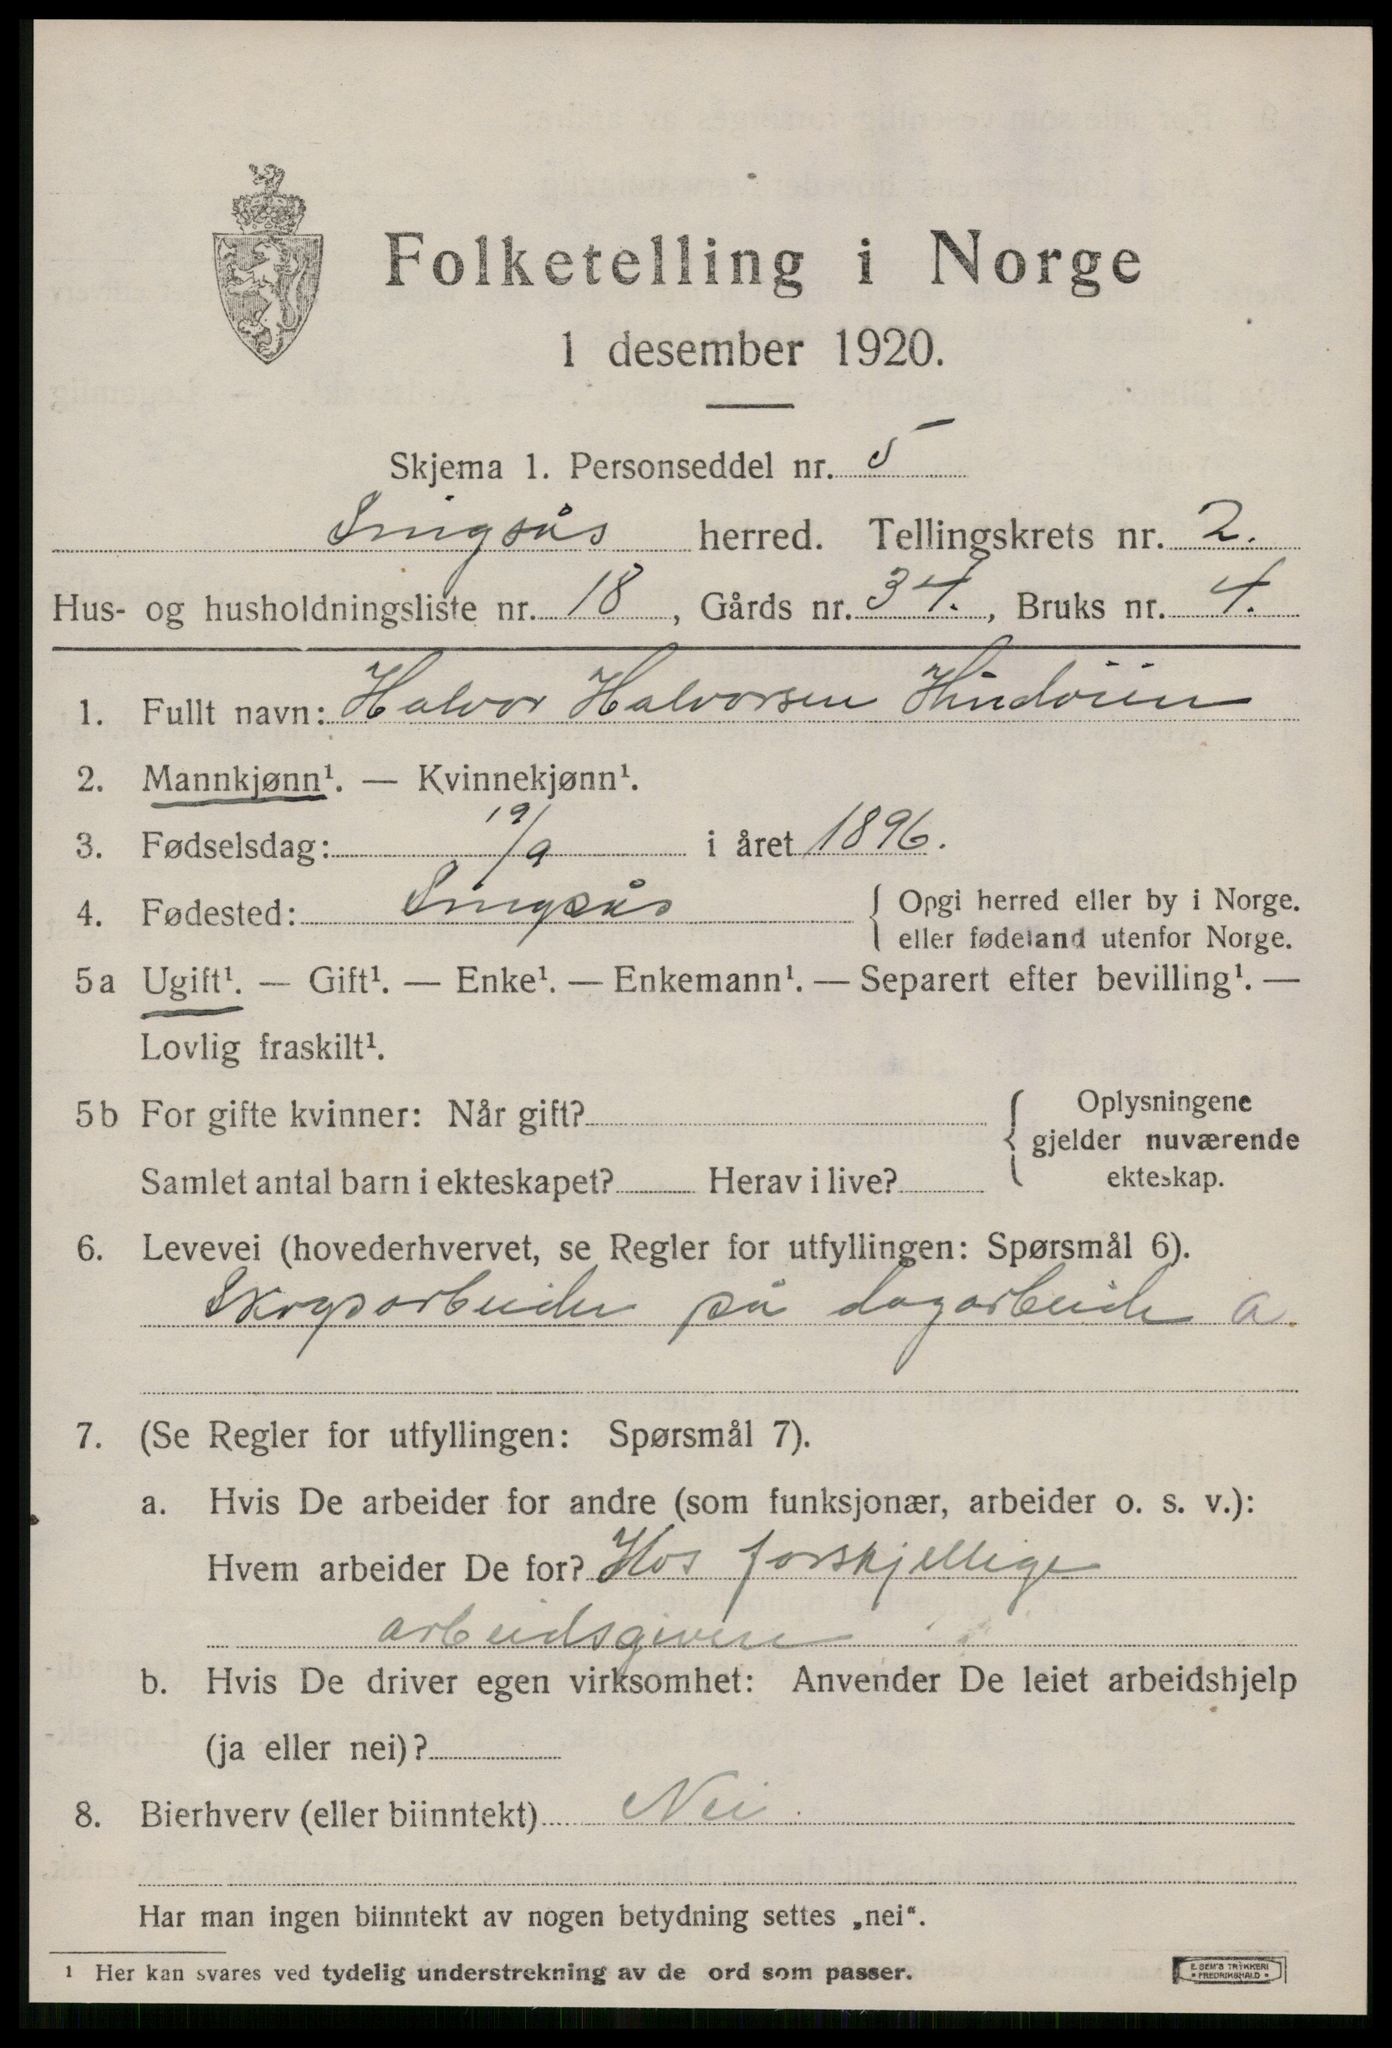 Folketelling i Norge
1 desember 1920.
Skjema 1. Personseddel nr. 5
Singsås herred. Tellingskrets nr. 2.
Hus- og husholdningsliste nr. 18, Gårds nr. 34., Bruks nr. 4.
1. Fullt navn: Halvor Halvorsen
2. Mannkjønn¹. — Kvinnekjønn¹.
3. Fødselsdag: 19/9 i året 1896.
4. Fødested: Singsås { Opgi herred eller by i Norge.
eller fødeland utenfor Norge.
5a Ugift¹. — Gift¹. — Enke¹. — Enkemann¹. — Separert efter bevilling¹. —
Lovlig fraskilt¹.
5b For gifte kvinner: Når gift? { Oplysningene
gjelder nuværende
Samlet antal barn i ekteskapet? Herav i live? ekteskap.
6. Levevei (hovederhvervet, se Regler for utfyllingen: Spørsmål 6).
Skogsarbeider på dagarbeide a.
7. (Se Regler for utfyllingen: Spørsmål 7).
a. Hvis De arbeider for andre (som funksjonær, arbeider o. s. v.):
Hvem arbeider De for? Hos forskjellige
arbeidsgivere
b. Hvis De driver egen virksomhet: Anvender De leiet arbeidshjelp
(ja eller nei)?
8. Bierhverv (eller biinntekt) Nei
Har man ingen biinntekt av nogen betydning settes „nei“.
¹ Her kan svares ved tydelig understrekning av de ord som passer.
E. SEM'S TRYKKERI
FREDRIKSHALD